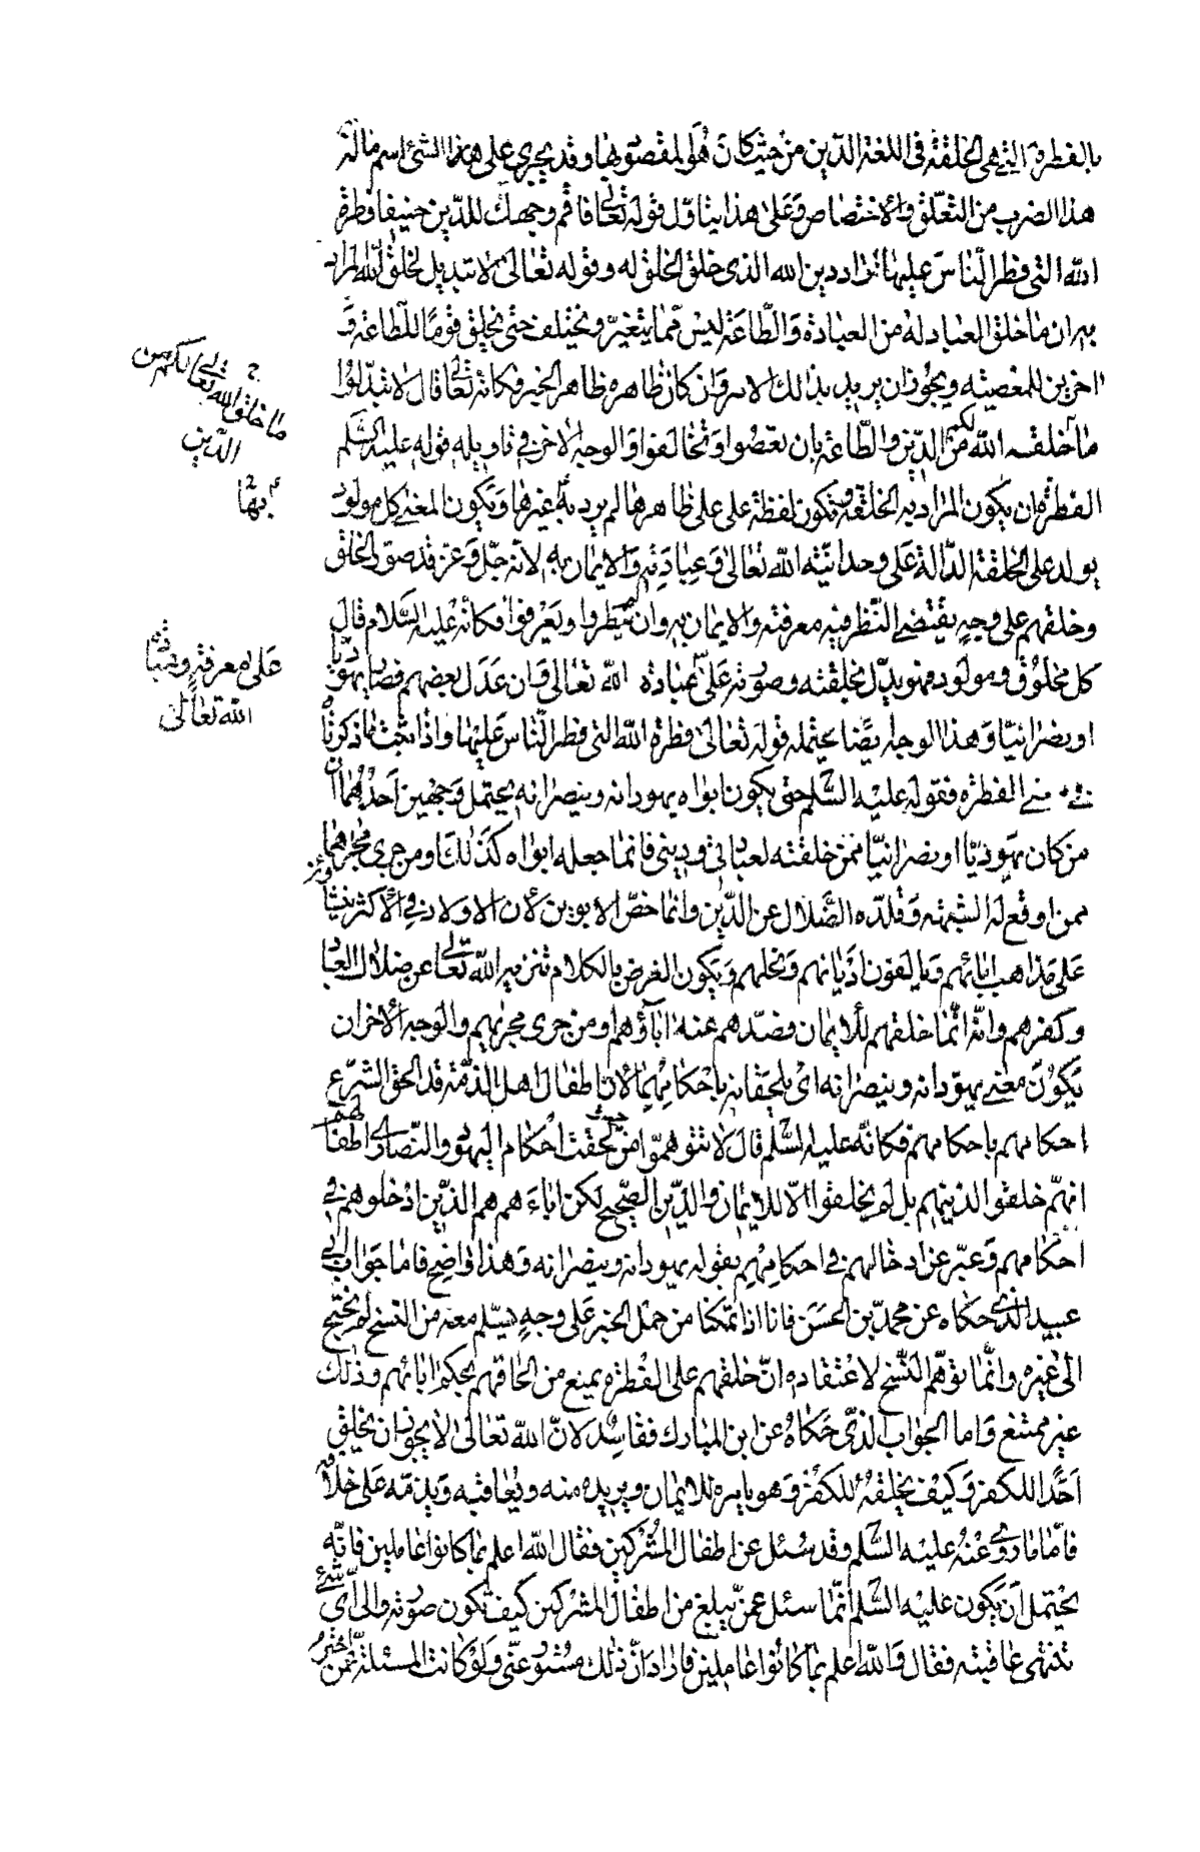 بالفطرة التي هي الخلقة في اللغة الدين من حيث كان هو المقصود بها وقد يجري على هذا الشئ اسم ماله
هذا الضرب من التعلق والاختصاص وعلى هذا يتاول قوله تعالى فاقم وجهك للدين حنيفا فطرة
الله التي فطر الناس عليها اراد دين الله الذي خلق الخلق له وقوله تعالى لا تبديل لخلق الله المراد
به ان ما خلق العباد له من العبادة والطاعة ليس مما يتغير ويختلف حتى يخلق قوما للطاعة و
اخرين للمعصية ويجوز ان يريد بذلك الامر وان كان ظاهره ظاهر الخبر وكانه تعالى قال لا تبدلوا
ما خلقه الله لكم من الدين والطاعة بان تعصوا وتخالفوا والوجه الاخر في تاويله قوله عليه السلم
الفطرة ان يكون المراد به الخلقة وتكون لفظة على على ظاهرها لم يرد به غيرها ويكون المعنى كل مولود
يولد على الخلقة الدالة على وحدانية الله تعالى وعبادته والايمان به لانه جل وعز قد صور الخلق
وخلقهم على وجه يقتضي النظر فيه معرفته والايمان به وان لم ينظروا ويعرفوا فكانه عليه السلام قال
كل مخلوق ومولود فهو يدل بخلقته وصورته على عبادة الله تعالى وان عدل بعضهم فصار يهوديا
او نصرانيا وهذا الوجه ايضا يحتمله قوله تعالى فطرة الله التي فطر الناس عليها واذا ثبت ما ذكرناه
في معنى الفطرة فقوله عليه السلم حتى يكون ابواه يهودانه وينصرانه يحتمل وجهين احدهما ان
من كان يهوديا او نصرانيا ممن خلقته لعبادتي وديني فانما جعله ابواه كذلك ومن جرى مجراهما
ممن اوقع له الشبهة وقلده الضلال عن الدين وانما خص الابوين لان الاولاد في الاكثر ينشؤا
على مذاهب ابائهم ويالفون اديانهم ونحلهم ويكون الغرض بالكلام تنزيه الله تعالى عن ضلال العباد
وكفرهم وانه انما خلقهم للايمان فصدهم عنه اباؤهم او من جرى مجريهم والوجه الاخر ان
يكون معنى يهودانه وينصرانه اي يلحقانه باحكامهما لان اطفال اهل الذمة قد الحق الشرع
احكامهم باحكامهم فكانه عليه السلم قال لا تتوهموا من حيث لحقت احكام اليهود والنصارى اطفالهم
انهم خلقوا لدينهم بل لم يخلقوا الا للايمان والدين الصحيح لكن اباءهم هم الذين ادخلوهم في
احكامهم وعبر عن ادخالهم في احكامهم بقوله يهودانه وينصرانه وهذا واضح فاما جواب ابي
عبيد الذي حكاه عن محمد بن الحسن فانا اذا تمكنا من حمل الخبر على وجه يسلم معه من النسخ لم نحتج
الى غيره وانما توهم النسخ لاعتقاده ان خلقهم على الفطرة يمنع من الحاقهم بحكم ابائهم وذلك
غير ممتنع واما الجواب الذي حكاه عن ابن المبارك ففاسد لان الله تعالى لا يجوز ان يخلق
احدا للكفر وكيف يخلقه للكفر وهو يامره للايمان ويريده منه ويعاقبه ويذمه على خلافه
فاما ما روي عنه عليه السلم وقد سئل عن اطفال المشركين فقال الله اعلم بما كانوا عاملين فانه
يحتمل ان يكون عليه السلم انما سئل عمن يبلغ من اطفال المشركين كيف تكون صورته والى اي شئ
تنتهي عاقبته فقال والله اعلم بما كانوا عاملين فاراد ان ذلك مستور عني ولو كانت المسئلة عمن اخترم
ما خلق الله تعالى لكم من
الدين
بها
على معرفته وعبادة
الله تعالى